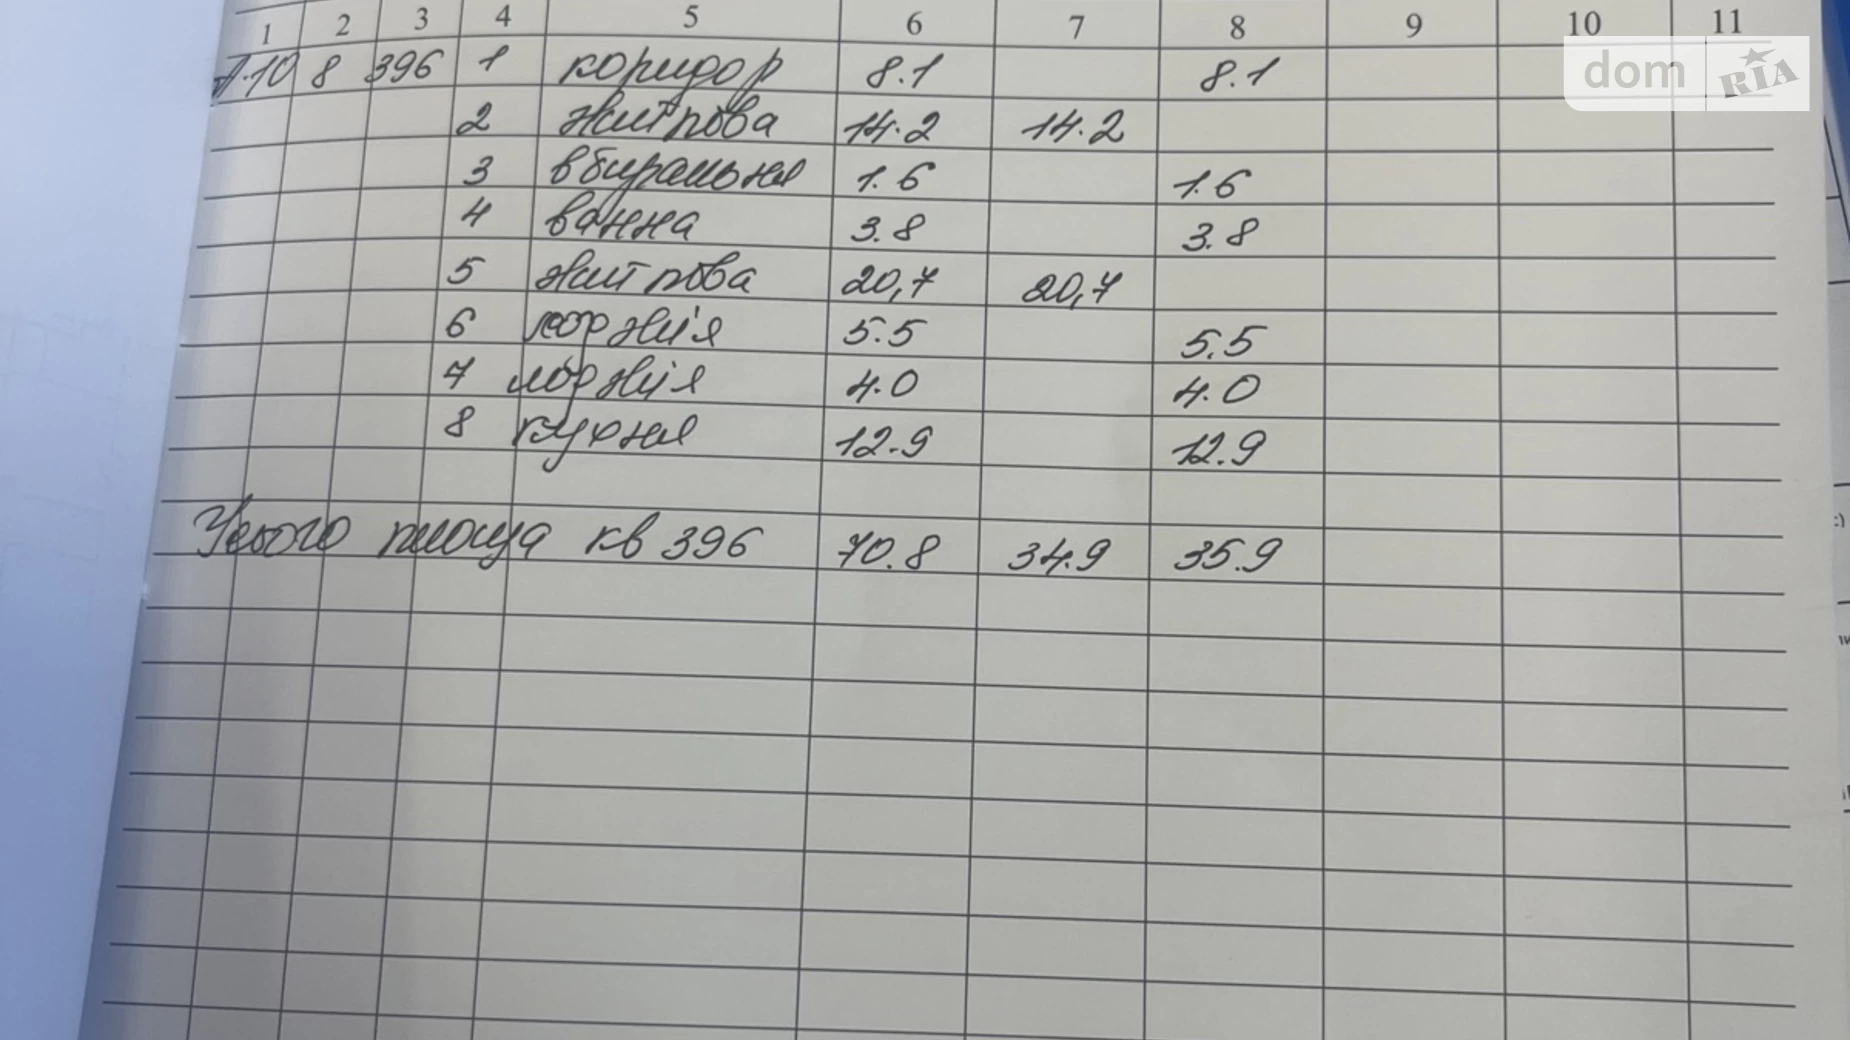 1 2 3 4 5 6 7 8 9 10 11
dom RIA
Л.10 8 396 1 коридор 8.1 8.1
2 житлова 14.2 14.2
3 вбиральня 1.6 1.6
4 ванна 3.8 3.8
5 житлова 20,7 20,7
6 лоджія 5.5 5.5
7 лоджія 4.0 4.0
8 кухня 12.9 12.9
Усього площа кв 396 70.8 34.9 35.9